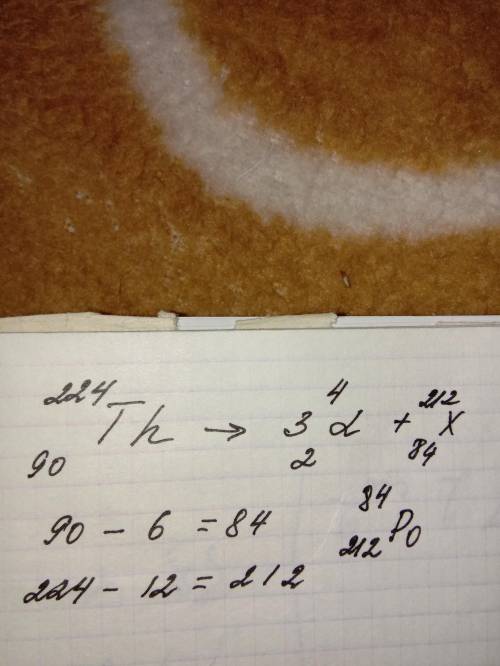 ²²⁴₉₀Th → 3 ⁴₂α + ²¹²₈₄X
90 - 6 = 84 ⁸⁴₂₁₂Po
224 - 12 = 212